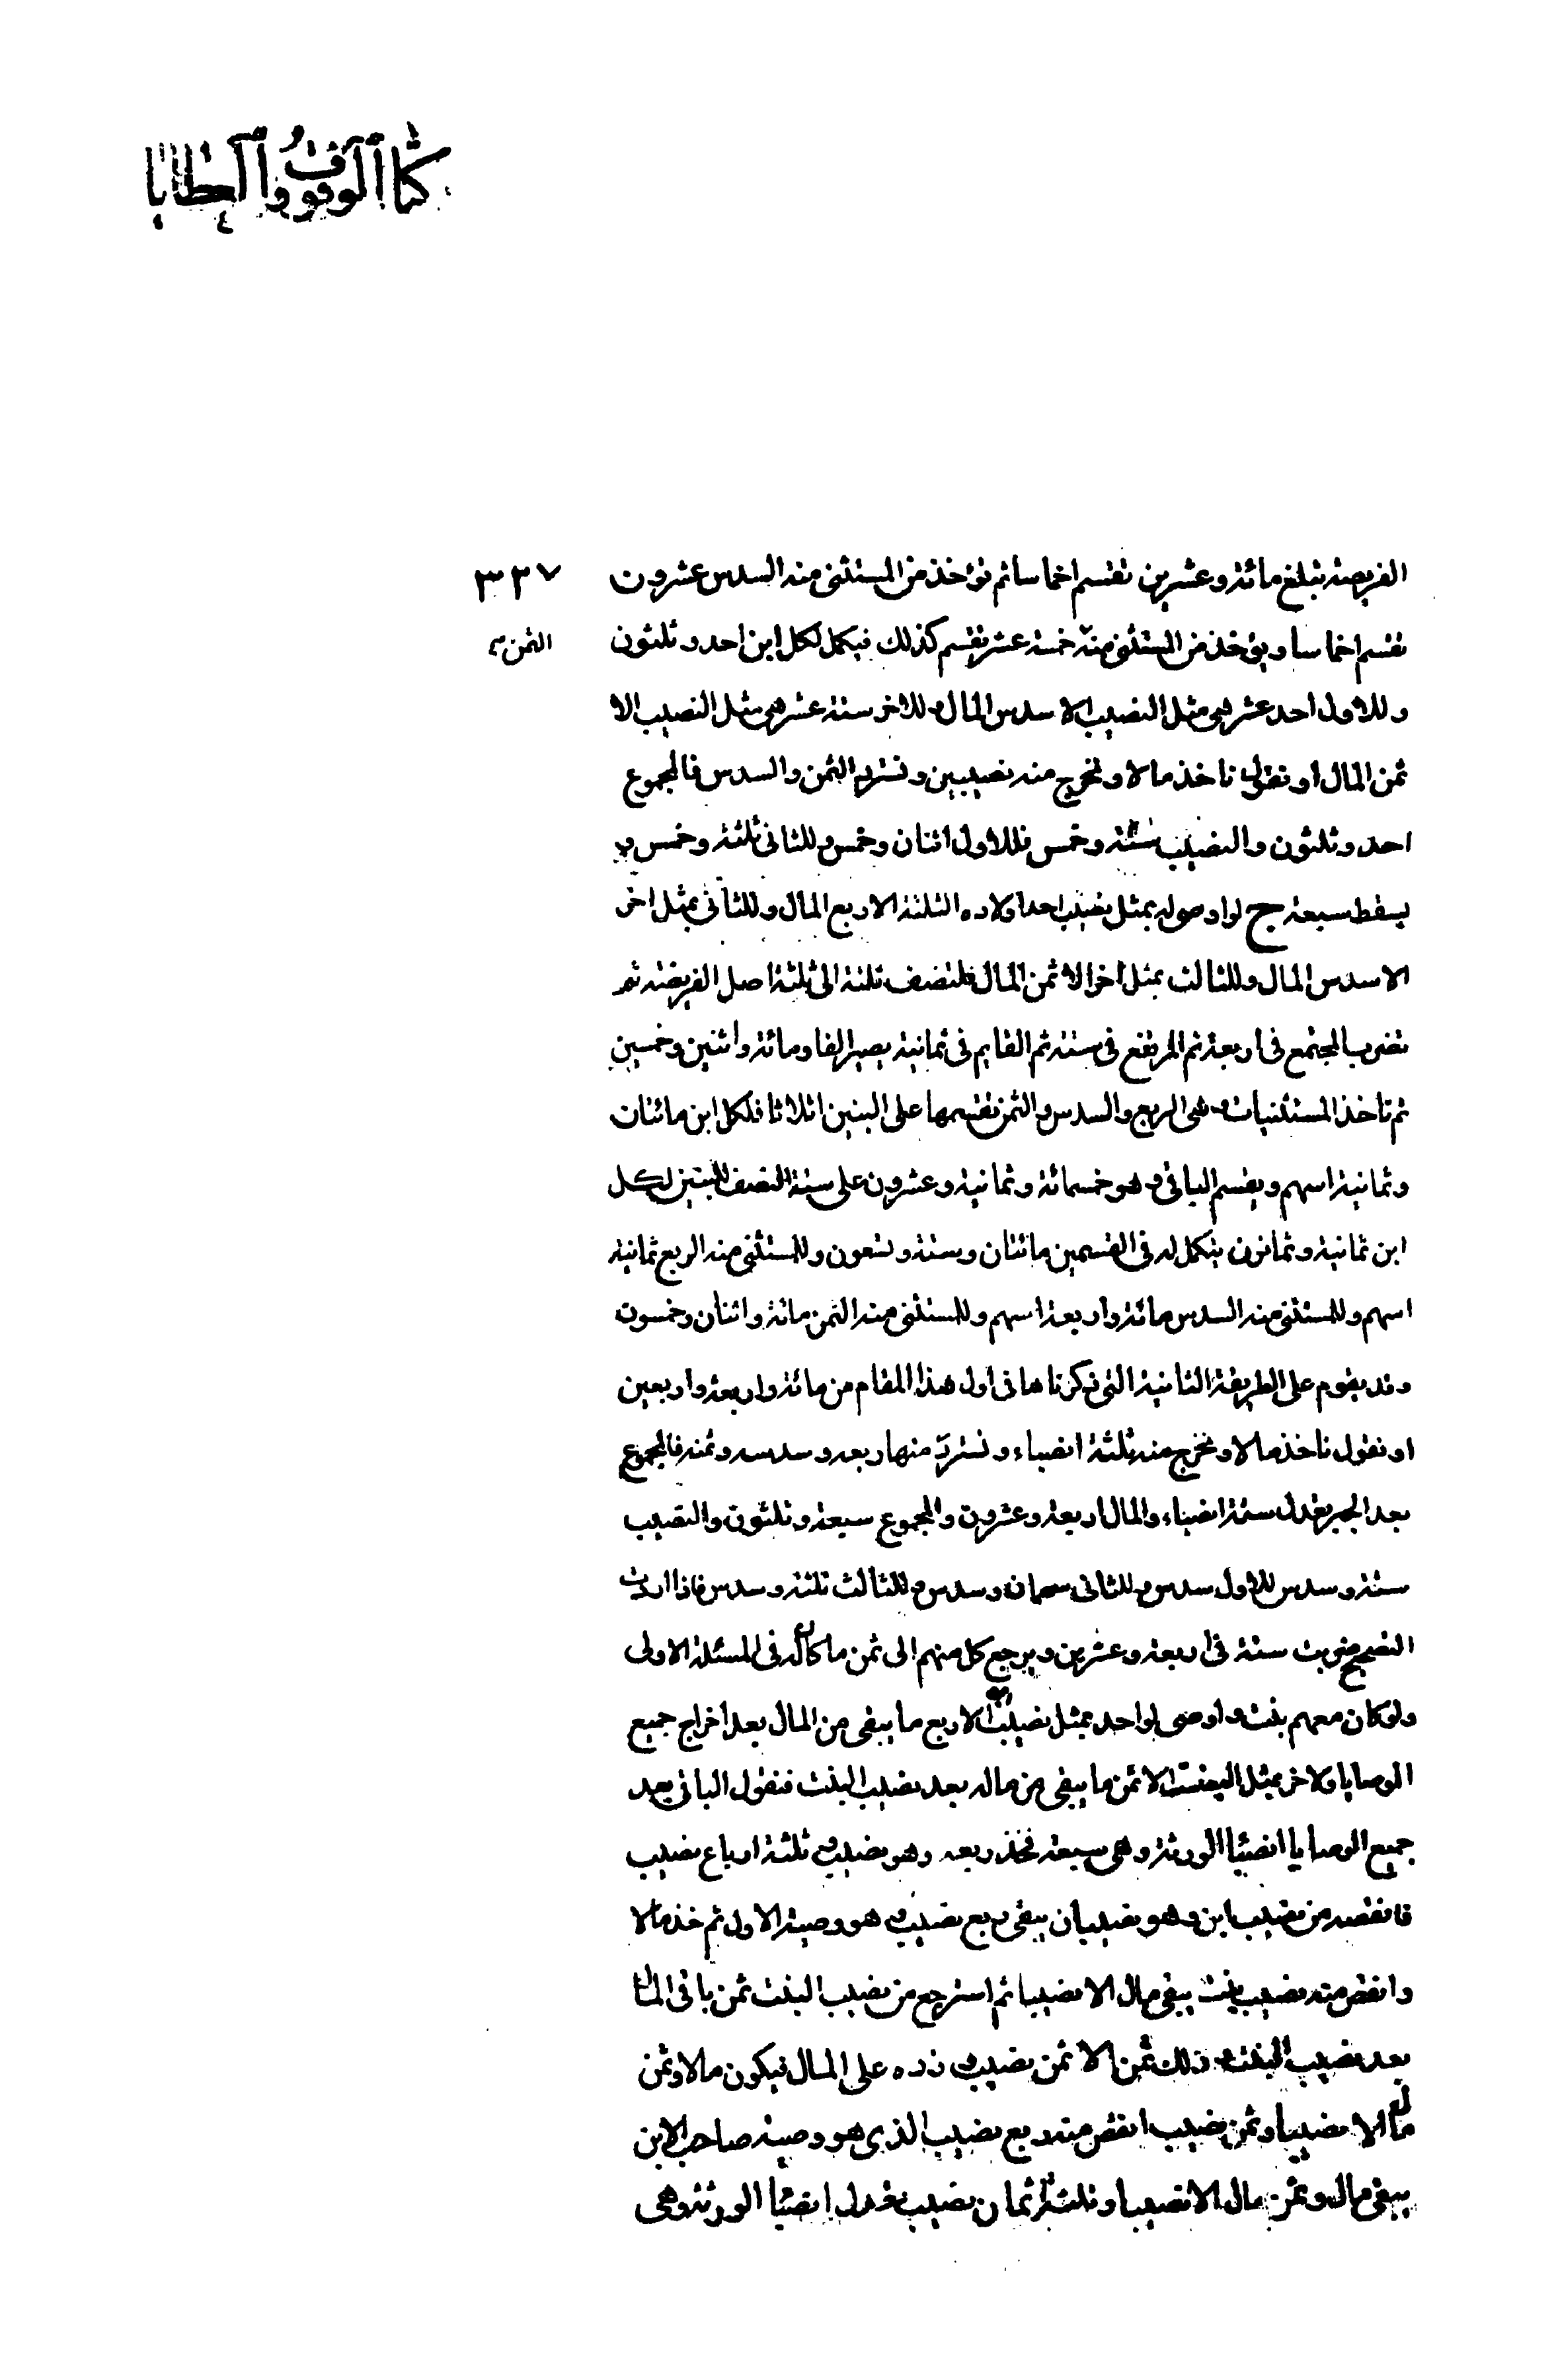 كتاب الوقوف والعطايا
٣٣٧
الفريضة تبلغ مائة وعشرين تقسم اخماسا ثم تؤخذ من المستثنى منه السدس عشرون
تقسم اخماسا ويؤخذ من المستثنى منه خمسة عشر تقسم كذلك فيكمل لكل ابن احد وثلثون
الثمن
وللاول احد عشر هى مثل النصيب الا سدس المال وللاخر ستة عشر هى مثل النصيب الا
ثمن المال او نقول ناخذ مالا ونخرج منه نصيبين ونسترد الثمن والسدس فالمجموع
احد وثلثون والنصيب ستة وخمس فللاول اثنان وخمس وللثانى ثلثة وخمس و
يسقط سبعة ج لو اوصى له بمثل نصيب احد اولاده الثلثة الا ربع المال وللثانى بمثل اخر
الا سدس المال وللثالث بمثل اخر الا ثمن المال فلتضف ثلثة الى ثلثة اصل الفريضة ثم
تضرب المجتمع فى اربعة ثم المرتفع فى ستة ثم القايم فى ثمانية يصير الفا ومائة واثنين وخمسين
ثم تاخذ المستثنيات وهى الربع والسدس والثمن تقسمها على البنين اثلاثا فلكل ابن مائتان
وثمانية اسهم ويقسم الباقى وهو خمسمائة وثمانية وعشرون على ستة النصف للبنين لكل
ابن ثمانية وثمانون يتكمل له فى القسمين مائتان وستة وتسعون وللمستثنى منه الربع ثمانية
اسهم وللمستثنى منه السدس مائة واربعة اسهم وللمستثنى منه الثمن مائة واثنان وخمسون
وقد يقوم على الطريقة الثانية التى ذكرناها فى اول هذا المقام من مائة واربعة واربعين
او نقول ناخذ مالا ونخرج منه ثلثة انصباء ونسترد منها ربعه وسدسه وثمنه فالمجموع
بعد الجبر يعدل ستة انصباء والمال اربعة وعشرون والمجموع سبعة وثلثون والنصيب
ستة وسدس للاول سدس وللثانى سهمان وسدس وللثالث ثلثة وسدس فاذا اردت
التصحيح ضربت ستة فى اربعة وعشرين ويرجع كل منهم الى ثمن ما كان له فى المسئلة الاولى
ولو كان معهم بنت واوصى لواحد بمثل نصيب ابن الا ربع ما يبقى من المال بعد اخراج جميع
الوصايا ولاخر بمثل البنت الا ثمن ما يبقى من ماله بعد نصيب البنت فنقول الباقى بعد
جميع الوصايا انصباء الورثة وهى سبعة فخذ ربعه وهو نصيب وثلثة ارباع نصيب
فانقصه من نصيب ابن وهو نصيبان يبقى ربع نصيب وهو وصية الاول ثم خذ مالا
وانقص منه نصيب بنت يبقى مال الا نصيبا ثم استرجع من نصيب البنت ثمن باقى المال
بعد نصيب البنت وذلك ثمن الا ثمن نصيب زده على المال فيكون مالا وثمن
مال الا نصيبا وثمن نصيب انقص منه ربع نصيب الذى هو وصية صاحب الابن
يبقى مال وثمن مال الا نصيبا وثلثة اثمان نصيب يعدل انصباء الورثة وهى